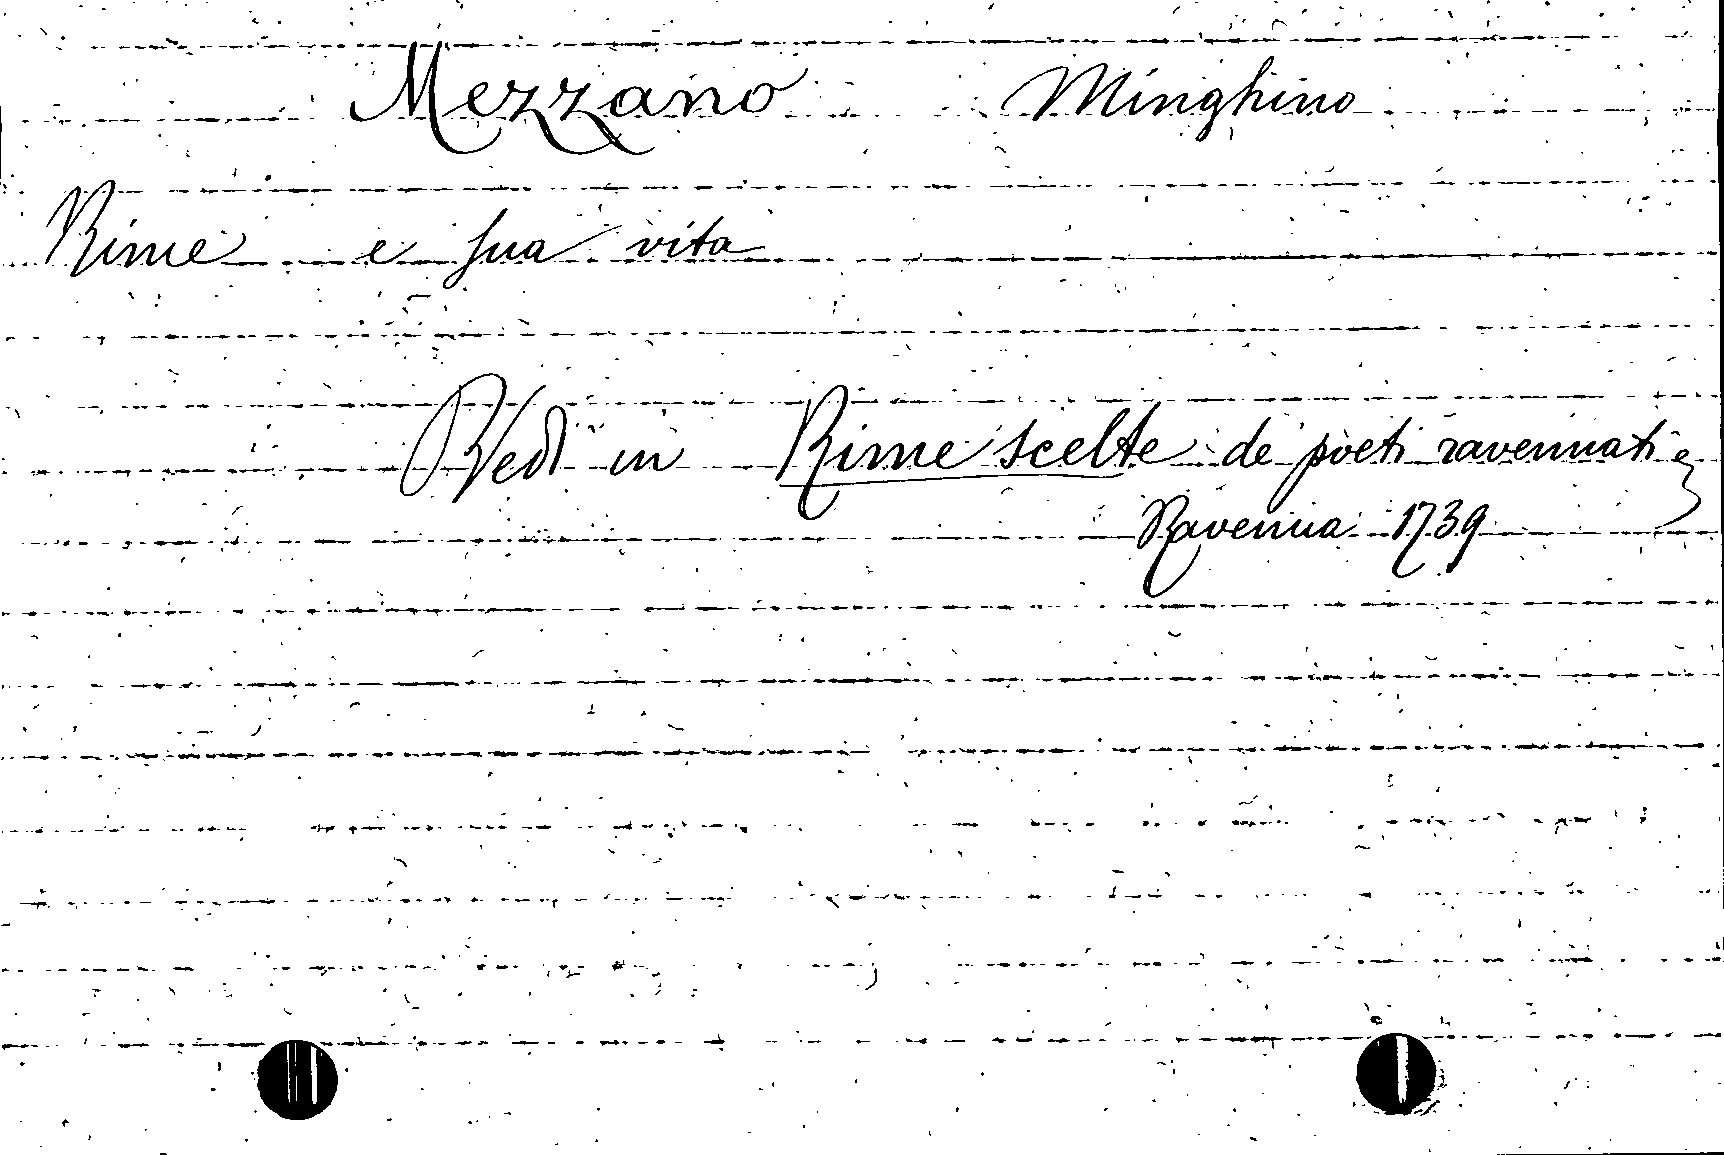 Mezzano Minghino
Rime e sua vita
Vedi in Rime scelte de' poeti ravennati
Ravenna 1739